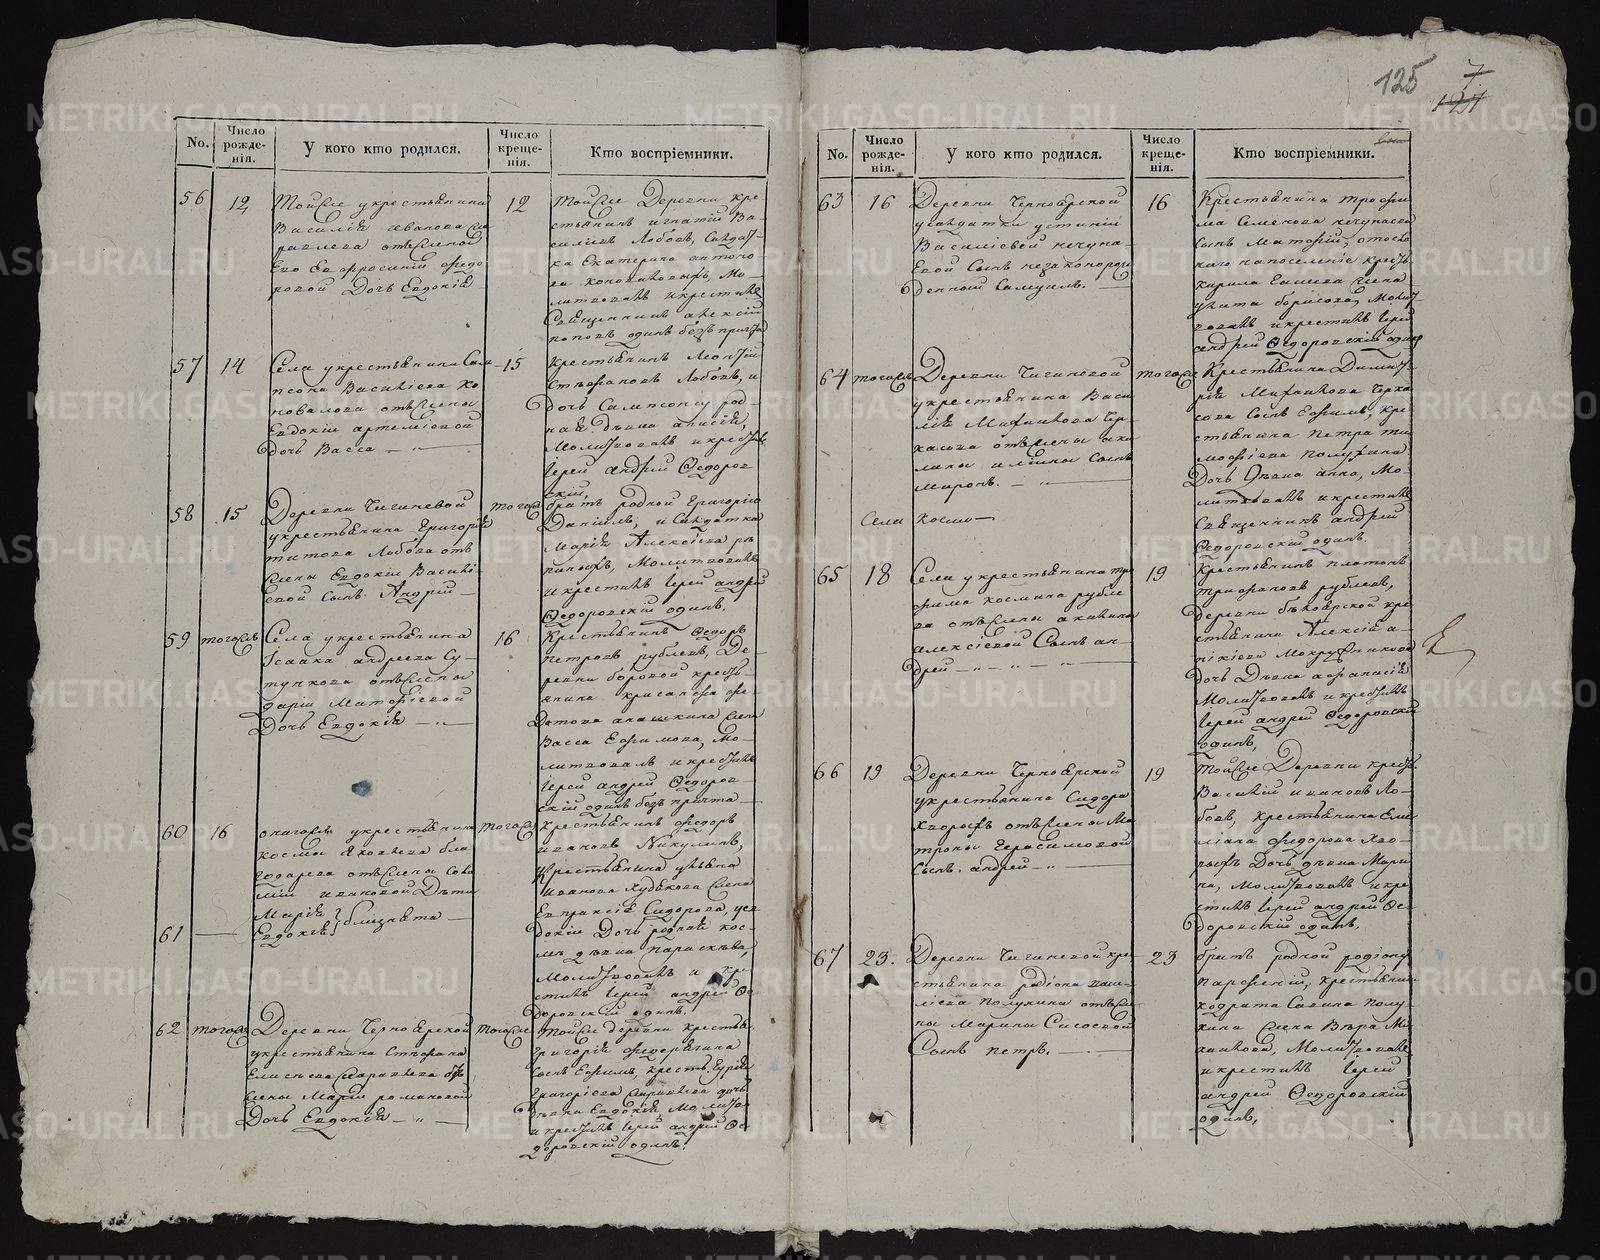 125
7
131
No.
Число рожде-нія.
У кого кто родился.
Число креще-нія.
Кто воспріемники.
56
12
Тойже укрестьянина
Василія иванова
отжены
Его Евфросиніи федо
ровой Дочь Евдокія
12
Тойже Деревни кре
стьянинъ игнатій Ва
силіевъ Лобовъ, Салдат
ка Екатерина антоно
ва коноваловыхъ, Мо
литвовалъ икрестилъ
Священникъ алексій
поповъ одинъ безъ причта
57
14
Села укрестьянина Сам
псона Василіева Ко
новалова отжены
Евдокіи артеміевой
дочь Васса
15
Крестьянинъ Леонтій
Стефановъ Лобовъ, и
Дочь Сампсону род
ная девка анисія,
Молитвовалъ икрестилъ
Іерей андрей Ѳедоров
скій,
58
15
Деревни Чигачевой
укрестьянина Григорія
титова Лобова отъ
жены Евдокіи Василі
евой Сынъ Андрей
тогожъ
братъ родной Григорію
Даніилъ, и Салдатка
Марія Алексіева
Молитвовалъ
икрестилъ Іерей андрей
Ѳедоровскій одинъ.
59
тогожъ
Села укрестьянина
Ісаака андреева Су
тункова отжены
даріи Матфіевой
Дочь Евдокія
16
Крестьянинъ Ѳедоръ
Петровъ рублевъ, Де
ревни боровой кресть
янина хрисанфа фе
дотова алашкина жена
Васса Ефимова, Мо
литвовалъ икрестилъ
Іерей андрей Ѳедоров
скій одинъ безъ причта
60
16
онагожъ укрестьянина
космы яковлева бла
годарева отжены Сове
тіи ивановой Дети
Марія
61
Евдокія близнята
тогожъ
Крестьянинъ федоръ
ивановъ Никулинъ,
Крестьянина
иванова Худякова жена
Евпраксія Сидорова,
докіи Дочь родная кос
мы девка параскева,
Молитвовалъ и кре
стилъ Іерей андрей Ѳе
доровскій одинъ.
62
тогожъ
Деревни Черноярской
укрестьянина Стефана
Елисеева отъ
жены Маріи романовой
Дочь Евдокія
Тойже
тойже деревни крестья
Григорія федорягина
Сынъ Ефимъ, крест. Гурія
Григоріева дочь
девка Евдокія Молитво
икрестилъ Іерей андрей Ѳе
доровскій одинъ.
No.
Число рожде-нія.
У кого кто родился.
Число креще-нія.
Кто воспріемники.
63
16
Деревни Черноярской
усалдатки устиніи
Василіевой нечуна
евой Сынъ незаконорож
денный Самуилъ.
16
Крестьянина трофи
ма Семенова нечунаева
Сынъ Матфій,
на поселеніе крест
кирила Еліева жена
улита борисова, Молит
вовалъ икрестилъ Іерей
андрей Ѳедоровскій одинъ
64
тогожъ
Деревни Чигачевой
укрестьянина Васи
лія Михаилова Чер
касова отжены аку
лины иліины Сынъ
Миронъ.
тогожъ
Крестьянина Димит
рія Михаилова Черка
сова Сынъ Ефимъ, кре
стьянина петра ти
мофіева полухина
Дочь Девка анна, Мо
литвовалъ икрестилъ
Священникъ андрей
Ѳедоровскій одинъ.
Села космо
65
18
Села укрестьянина тро
фима космина рубле
ва отжены акилины
алексіевой Сынъ ан
дрей
19
Крестьянинъ платонъ
трифановъ рублевъ,
Деревни белоярской кре
стьянина Алексія а
никіева Мокрушникова
дочь Девка афанасія
Молитвовалъ икрестилъ
Іерей андрей Ѳедоровскій
одинъ,
66
19
Деревни Черноярской
укрестьянина Сидора
Хворыхъ отжены Ма
троны Герасимовой
Сынъ андрей
19
Тойже Деревни крест.
Василій ивановъ Ло
бовъ, крестьянина Еми
ліана федорова Хво
рыхъ Дочь девка Мари
на, Молитвовалъ икре
стилъ Іерей андрей Ѳе
доровскій одинъ,
67
23.
Деревни Чигачевой кре
стьянина родіона
ліева полухина отже
ны Марины Сисоевой
Сынъ петръ.
23
братъ родной родіону
парфеній, крестьянина
кодрата Савина полу
хина жена Вера Ми
хаилова, Молитвовалъ
икрестилъ Іерей
андрей Ѳедоровскій
одинъ,
METRIKI.GASO-URAL.RU